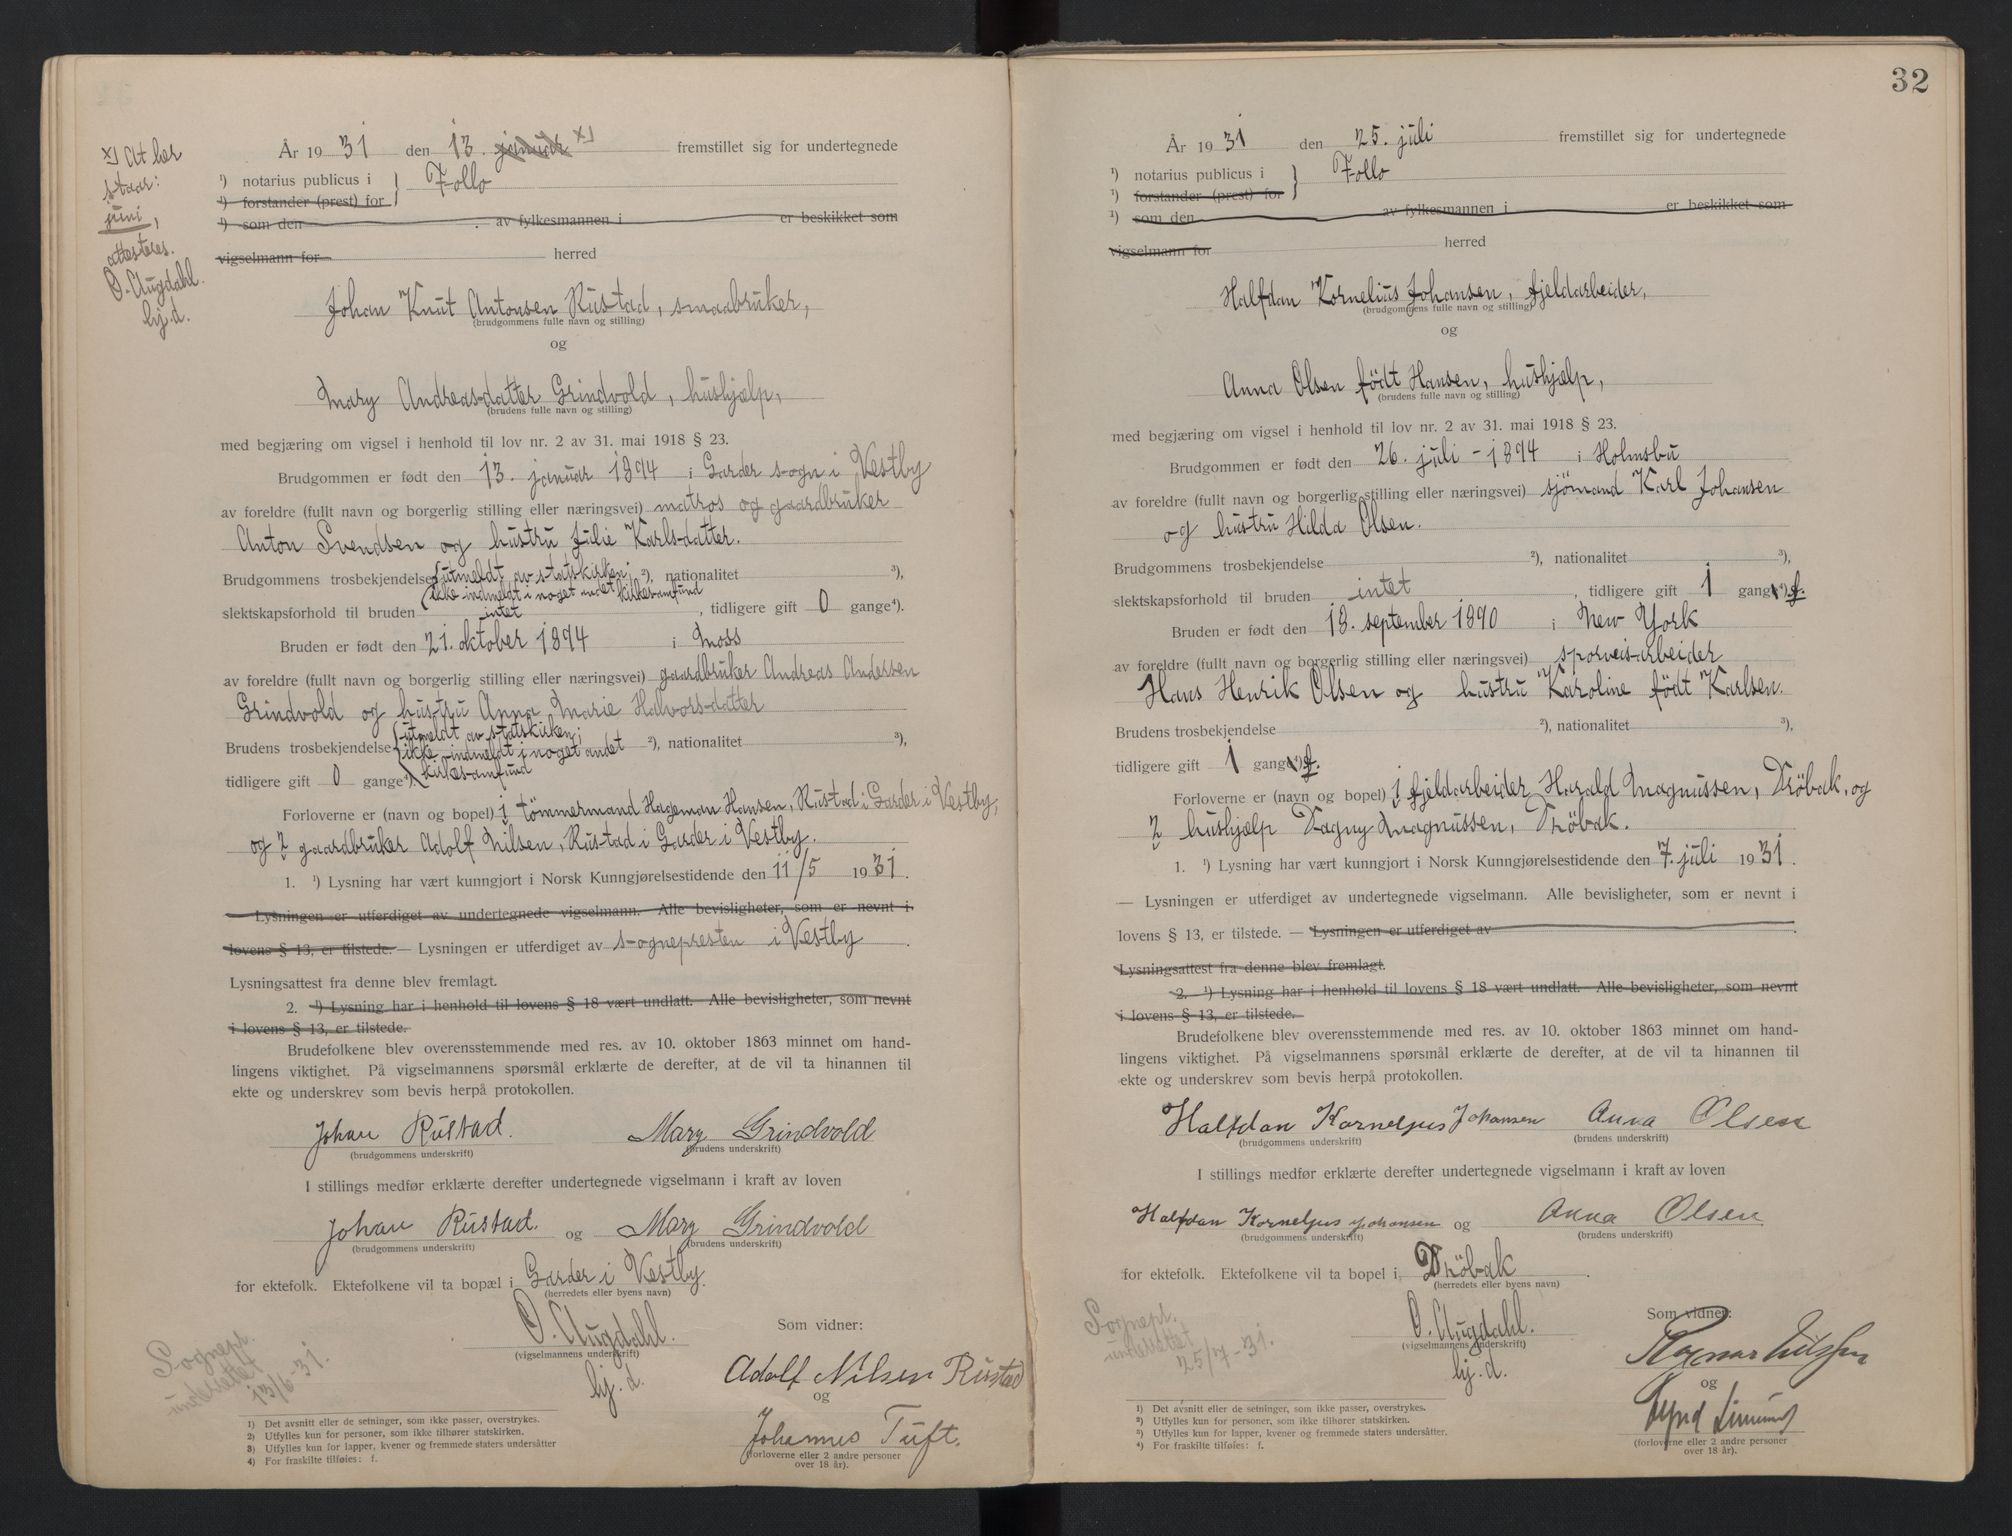 x) At her
staar:
juni,
attesteres.
O. Augdahl.
bj.d.
År 1931 den 13. januar x) fremstillet sig for undertegnede
¹) notarius publicus i } Follo
¹) forstander (prest) for
¹) som den . av fylkesmannen i er beskikket som
vigselmann for herred
Johan Knut Antonsen Rustad, smaabruker,
(brudgommens fulle navn og stilling)
og
Mary Andreasdatter Grindvold, hushjælp,
(brudens fulle navn og stilling)
med begjæring om vigsel i henhold til lov nr. 2 av 31. mai 1918 § 23.
Brudgommen er født den 13. januar 1894 i Garder sogn i Vestby
av foreldre (fullt navn og borgerlig stilling eller næringsvei) matros og gaardbruker
Anton Svendsen og hustru Julie Karlsdatter.
Brudgommens trosbekjendelse (utmeldt av statskirken; ²), nationalitet ³),
ikke indmeldt i noget andet kirkesamfund
slektskapsforhold til bruden intet , tidligere gift 0 gange⁴).
Bruden er født den 21. oktober 1894 i Moss
av foreldre (fullt navn og borgerlig stilling eller næringsvei) gaardbruker Andreas Andersen
Grindvold og hustru Anna Marie Halvorsdatter
(utmeldt av statskirken;
Brudens trosbekjendelse ikke indmeldt i noget andet ²), nationalitet ³),
tidligere gift 0 gange⁴). kirkesamfund
Forloverne er (navn og bopel) 1 tömmermand Hageman Hansen, Rustad i Garder i Vestby,
og 2 gaardbruker Adolf Nilsen, Rustad i Garder i Vestby.
1. ¹) Lysning har vært kunngjort i Norsk Kunngjørelsestidende den 11/5 1931.
Lysningen er utferdiget av undertegnede vigselmann. Alle bevisligheter, som er nevnt i
lovens § 13, er tilstede. — Lysningen er utferdiget av sognepresten i Vestby .
Lysningsattest fra denne blev fremlagt.
2. ¹) Lysning har i henhold til lovens § 18 vært undlatt. Alle bevisligheter, som nevnt
i lovens § 13, er tilstede.
Brudefolkene blev overensstemmende med res. av 10. oktober 1863 minnet om hand-
lingens viktighet. På vigselmannens spørsmål erklærte de derefter, at de vil ta hinannen til
ekte og underskrev som bevis herpå protokollen.
Johan Rustad. Mary Grindvold
(brudgommens underskrift) (brudens underskrift)
I stillings medfør erklærte derefter undertegnede vigselmann i kraft av loven
Johan Rustad. og Mary Grindvold
(brudgommens underskrift) (brudens underskrift)
for ektefolk. Ektefolkene vil ta bopæl i Garder i Vestby.
(herredets eller byens navn)
O. Augdahl. Som vidner:
(vigselmannens underskrift)
bj. d.
Sognepr.
underrettet
13/6-31.
Adolf Nilsen Rustad
og
Johannes Tuft.
(forloverne eller 2 andre personer
over 18 år).
1) Det avsnitt eller de setninger, som ikke passer, overstrykes.
2) Utfylles kun for personer, som ikke tilhører statskirken.
3) Utfylles kun for lapper, kvener og fremmede staters undersåtter
4) For fraskilte tilføies: f.
32
År 1931 den 25. juli fremstillet sig for undertegnede
¹) notarius publicus i } Follo
¹) forstander (prest) for
¹) som den av fylkesmannen i er beskikket som
vigselmann for herred
Halfdan Kornelius Johansen, fjeldarbeider,
(brudgommens fulle navn og stilling)
og
Anna Olsen födt Hansen, hushjælp,
(brudens fulle navn og stilling)
med begjæring om vigsel i henhold til lov nr. 2 av 31. mai 1918 § 23.
Brudgommen er født den 26. juli - 1894 i Holmsbu
av foreldre (fullt navn og borgerlig stilling eller næringsvei) sjömand Karl Johansen
og hustru Hilda Olsen.
Brudgommens trosbekjendelse ²), nationalitet ³),
slektskapsforhold til bruden intet , tidligere gift 1 gang⁴) f.
Bruden er født den 18. september 1890 i New York
av foreldre (fullt navn og borgerlig stilling eller næringsvei) sporveisarbeider
Hans Henrik Olsen og hustru Karoline födt Karlsen.
Brudens trosbekjendelse ²), nationalitet ³),
tidligere gift 1 gang⁴) f.
Forloverne er (navn og bopel) 1 fjeldarbeider Harald Magnussen, Dröbak, og
2 hushjælp Dagny Magnussen, Dröbak.
1. ¹) Lysning har vært kunngjort i Norsk Kunngjørelsestidende den 7. juli 1931.
— Lysningen er utferdiget av undertegnede vigselmann. Alle bevisligheter, som er nevnt i
lovens § 13, er tilstede. — Lysningen er utferdiget av .
Lysningsattest fra denne blev fremlagt.
2. ¹) Lysning har i henhold til lovens § 18 vært undlatt. Alle bevisligheter, som nevnt
i lovens § 13, er tilstede.
Brudefolkene blev overensstemmende med res. av 10. oktober 1863 minnet om hand-
lingens viktighet. På vigselmannens spørsmål erklærte de derefter, at de vil ta hinannen til
ekte og underskrev som bevis herpå protokollen.
Halfdan Korneljus Johansen Anna Olsen
(brudgommens underskrift) (brudens underskrift)
I stillings medfør erklærte derefter undertegnede vigselmann i kraft av loven
Halfdan Korneljus Johansen og Anna Olsen
(brudgommens underskrift) (brudens underskrift)
for ektefolk. Ektefolkene vil ta bopel i Dröbak .
(herredets eller byens navn)
O. Augdahl. Som vidner:
(vigselmannens underskrift)
bj. d.
Sognepr.
underrettet
25/7-31.
Ragnar Nilssen
og
(forloverne eller 2 andre personer
over 18 år).
1) Det avsnitt eller de setninger, som ikke passer, overstrykes.
2) Utfylles kun for personer, som ikke tilhører statskirken.
3) Utfylles kun for lapper, kvener og fremmede staters undersåtter.
4) For fraskilte tilføies: f.